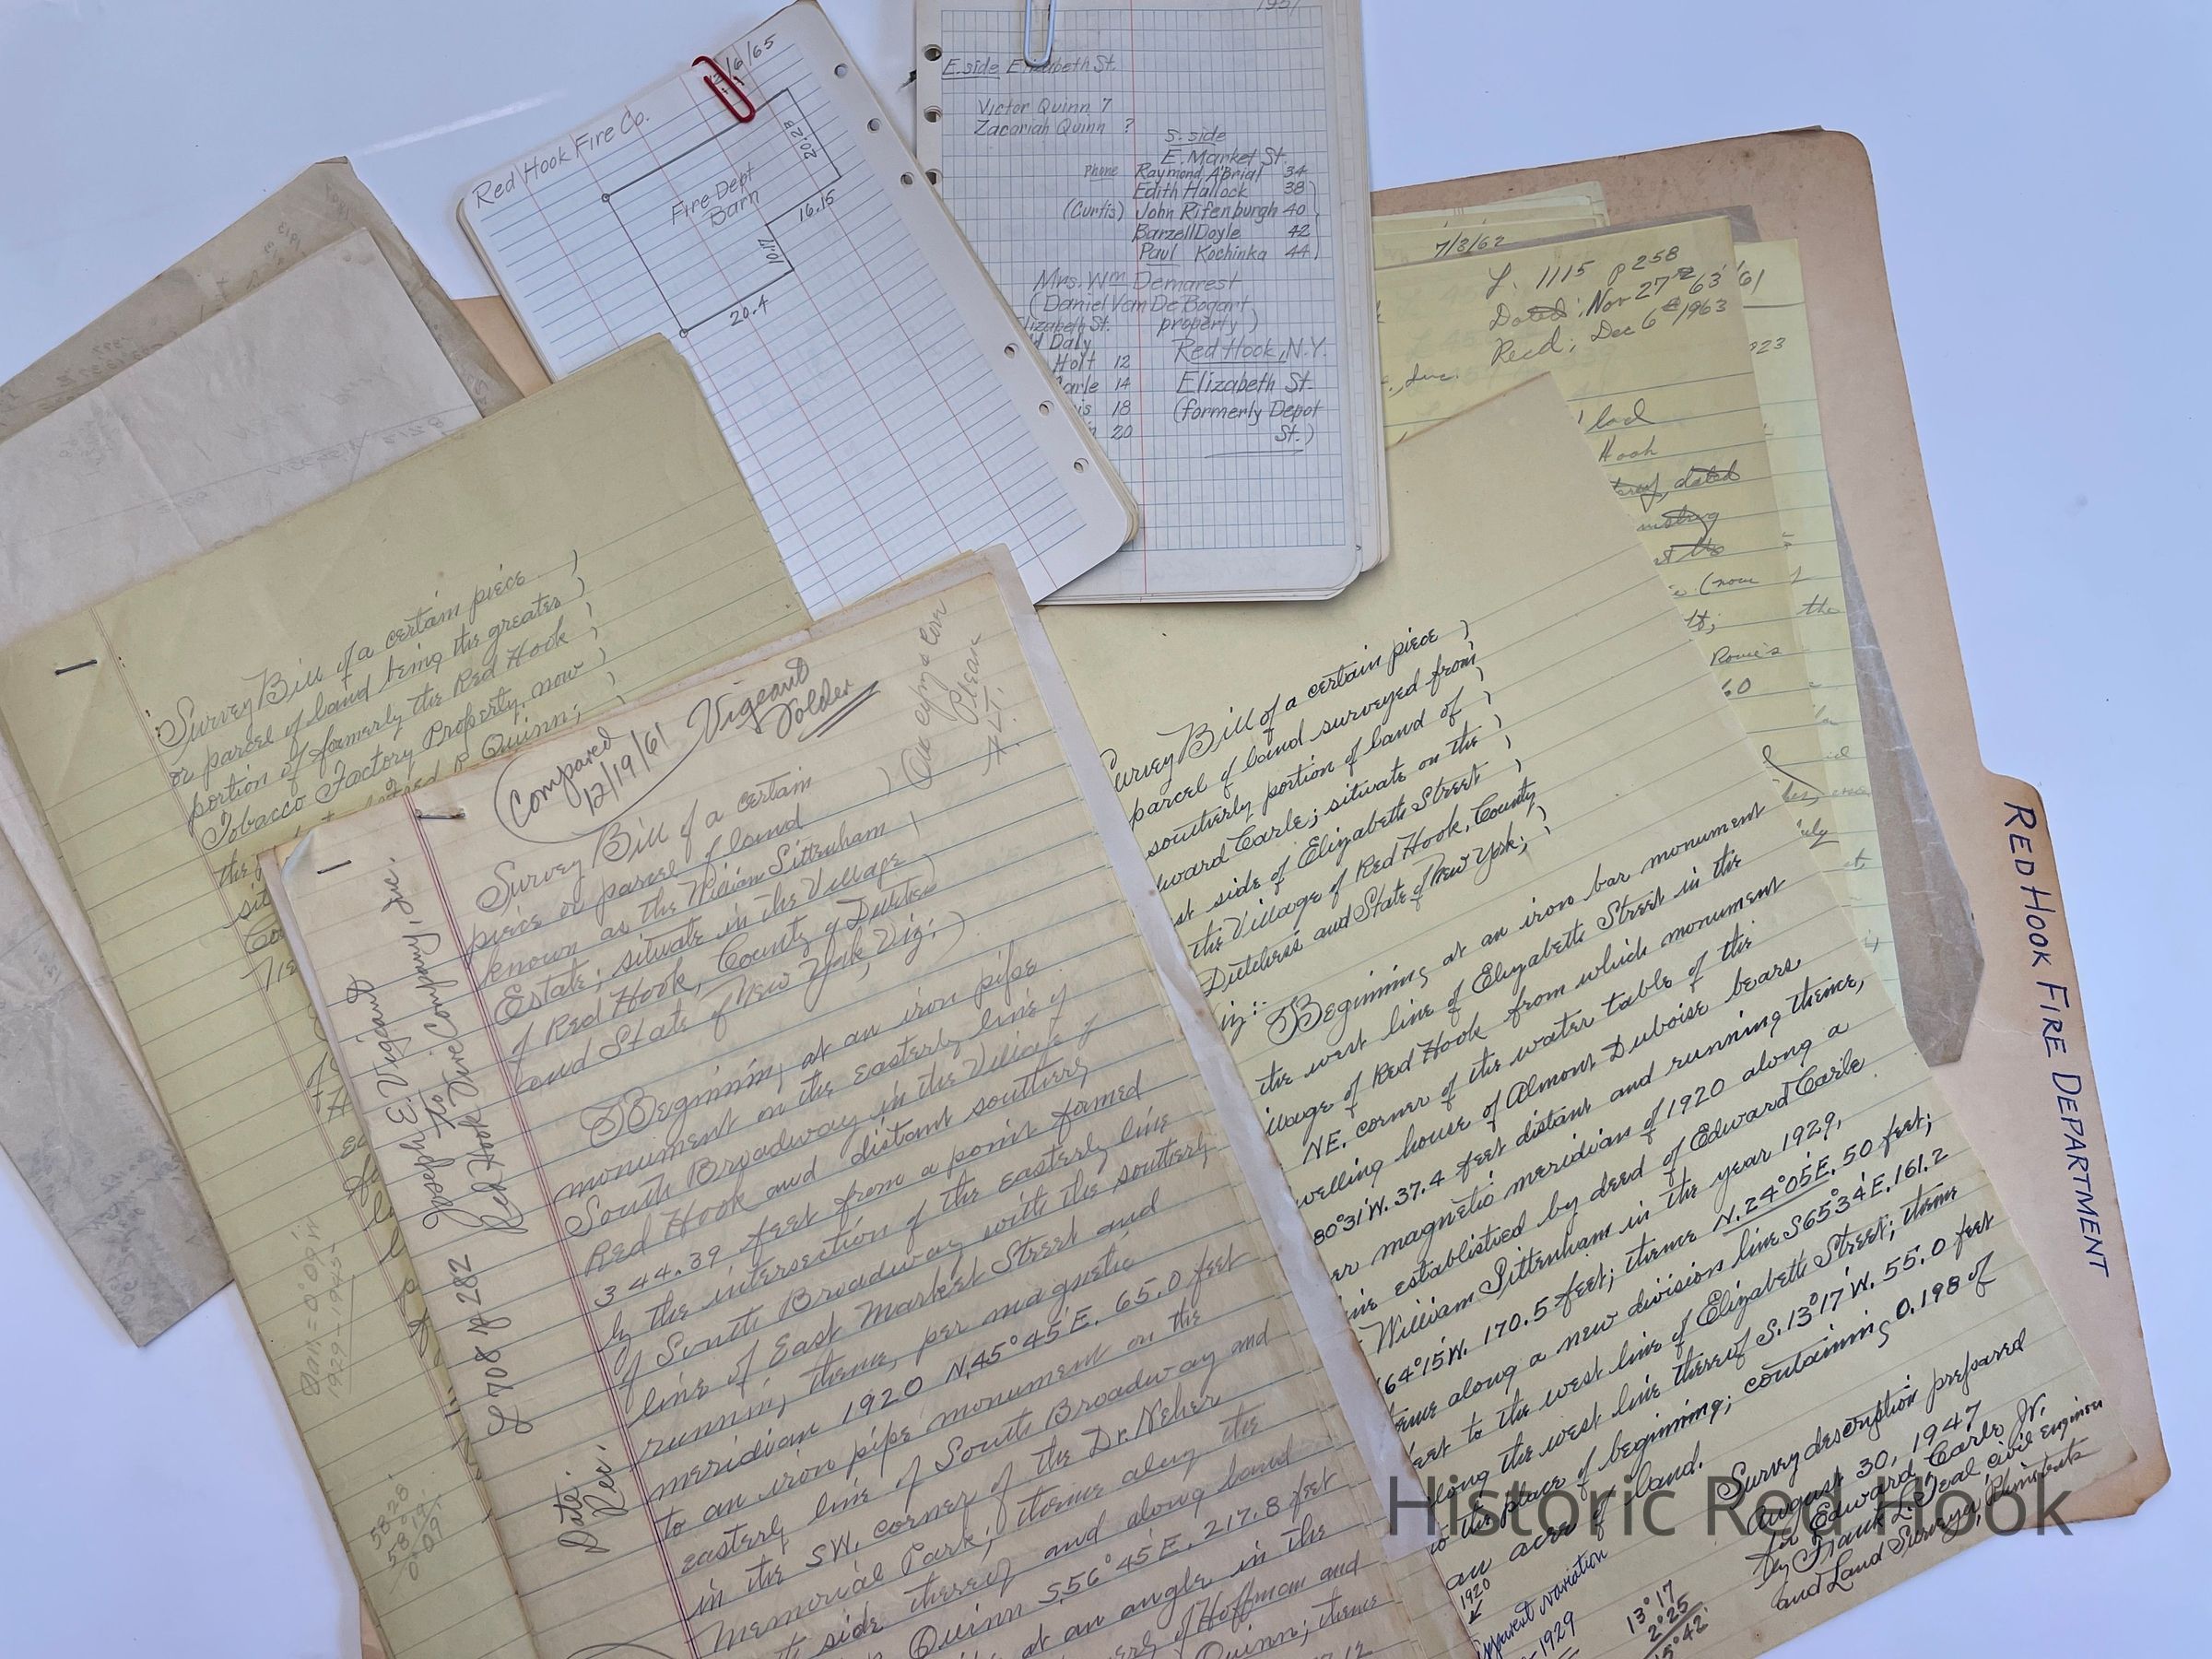 Red Hook Fire Co.
12/6/65
Fire Dept
Barn
20.23
16.15
10.17
20.4
1957
E. side Elizabeth St.
Victor Quinn 7
Zacariah Quinn ?
S. side
E. Market St.
Phone Raymond Abrial 34
Edith Hallock 38
(Curtis) John Rifenburgh 40
Barzell Doyle 42
Paul Kochinka 44
Mrs. Wm Demarest
(Daniel Van De Bogart
Elizabeth St. property)
Daly
Holt 12
Carle 14
18
20
Red Hook, N.Y.
Elizabeth St.
(formerly Depot
St.)
7/3/62
L. 1115 p 258
Dated; Nov 27 63 '61
Recd; Dec 6 1963
Inc.
Hook
dated
(now
the
Rowe's
RED HOOK FIRE DEPARTMENT
Survey Bill of a certain piece
or parcel of land being the greater
portion of formerly the Red Hook
Tobacco Factory Property, now
Quinn;
the
Var. = 0°09' in
1929-1945
58°28'
58°19'
0°09'
Compared
12/19/61
Vigeant
Folder
One copy & Cover
Please
Survey Bill of a certain
piece or parcel of land
known as the William Pittenham
Estate; situate in the Village
of Red Hook, County of Dutchess
and State of New York, Viz:
Beginning at an iron pipe
monument on the easterly line of
South Broadway in the Village of
Red Hook and distant southerly
344.39 feet from a point formed
by the intersection of the easterly line
of South Broadway with the southerly
line of East Market Street and
running thence, per magnetic
meridian 1920 N.45°45'E. 65.0 feet
to an iron pipe monument on the
easterly line of South Broadway and
in the SW. corner of the Dr. Neher
Memorial Park; thence along the
side thereof and along land
Quinn S.56°45'E. 217.8 feet
at an angle in the
of Hoffman and
Quinn; thence
Joseph E. Vigeant
To
Red Hook Fire Company, Inc.
L 708 p 282
Date:
Rec:
Survey Bill of a certain piece
parcel of land surveyed from
southerly portion of land of
Edward Carle; situate on the
west side of Elizabeth Street
the Village of Red Hook, County
Dutchess and State of New York;
Viz:: Beginning at an iron bar monument
the west line of Elizabeth Street in the
Village of Red Hook from which monument
NE. corner of the water table of the
dwelling house of Almont Duboise bears
80°31'W. 37.4 feet distant and running thence,
per magnetic meridian of 1920 along a
line established by deed of Edward Carle
William Pittenham in the year 1929,
64°15'W. 170.5 feet; thence N.24°05'E. 50 feet;
thence along a new division line S65°34'E. 161.2
feet to the west line of Elizabeth Street; thence
along the west line thereof S.13°17'W. 55.0 feet
to the place of beginning; containing 0.198 of
an acre of land.
Survey description prepared
August 30, 1947
for Edward Carle Jr.
by Frank L. Teal civil engineer
and Land Surveyor, Rhinebeck
1920
Apparent Variation
1929
13°17'
2°25'
15°42'
Historic Red Hook